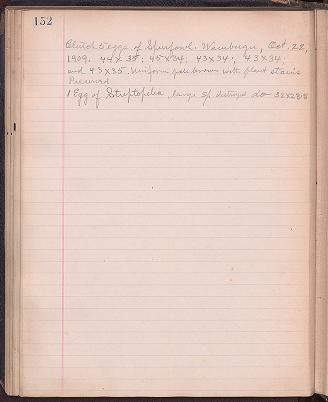 152
Clutch 5 eggs of Spurfowl. Wambugu, Oct. 28,
1909. 44 x 35; 45 x 34; 43 x 34; 43 x 34;
and 43 x 35. Uniform pale brown with plant stains
Preserved
1 Egg of Streptopelia, large sp. destroyed do 32 x 23.5